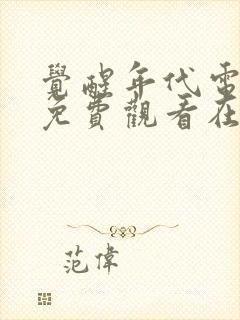 覺醒年代電
免費觀看在
范偉